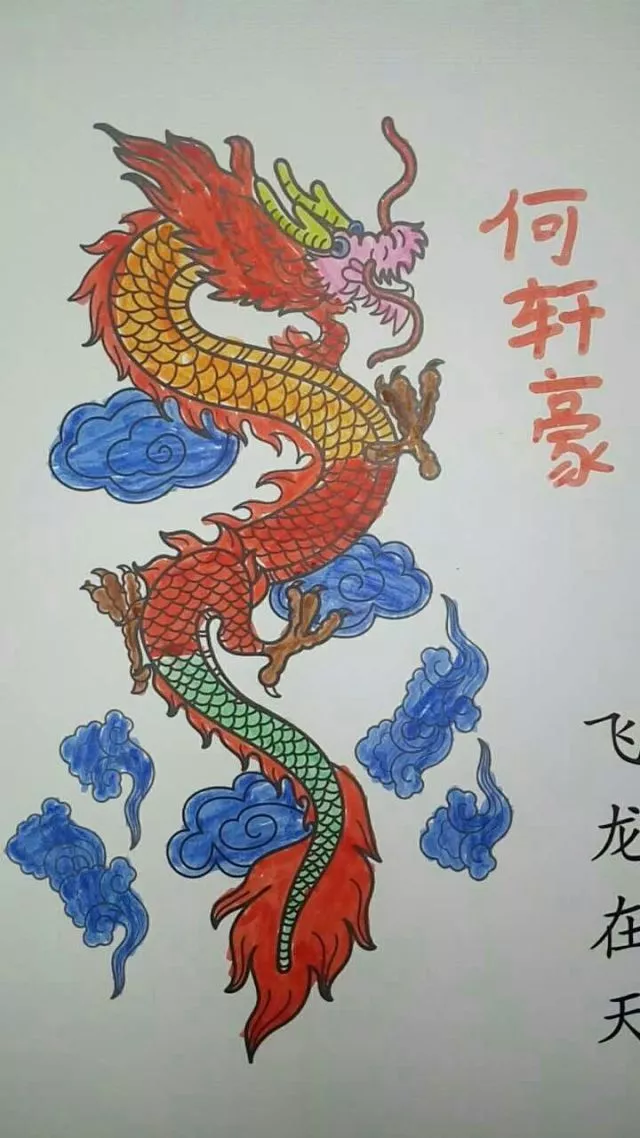 何轩豪
飞龙在天